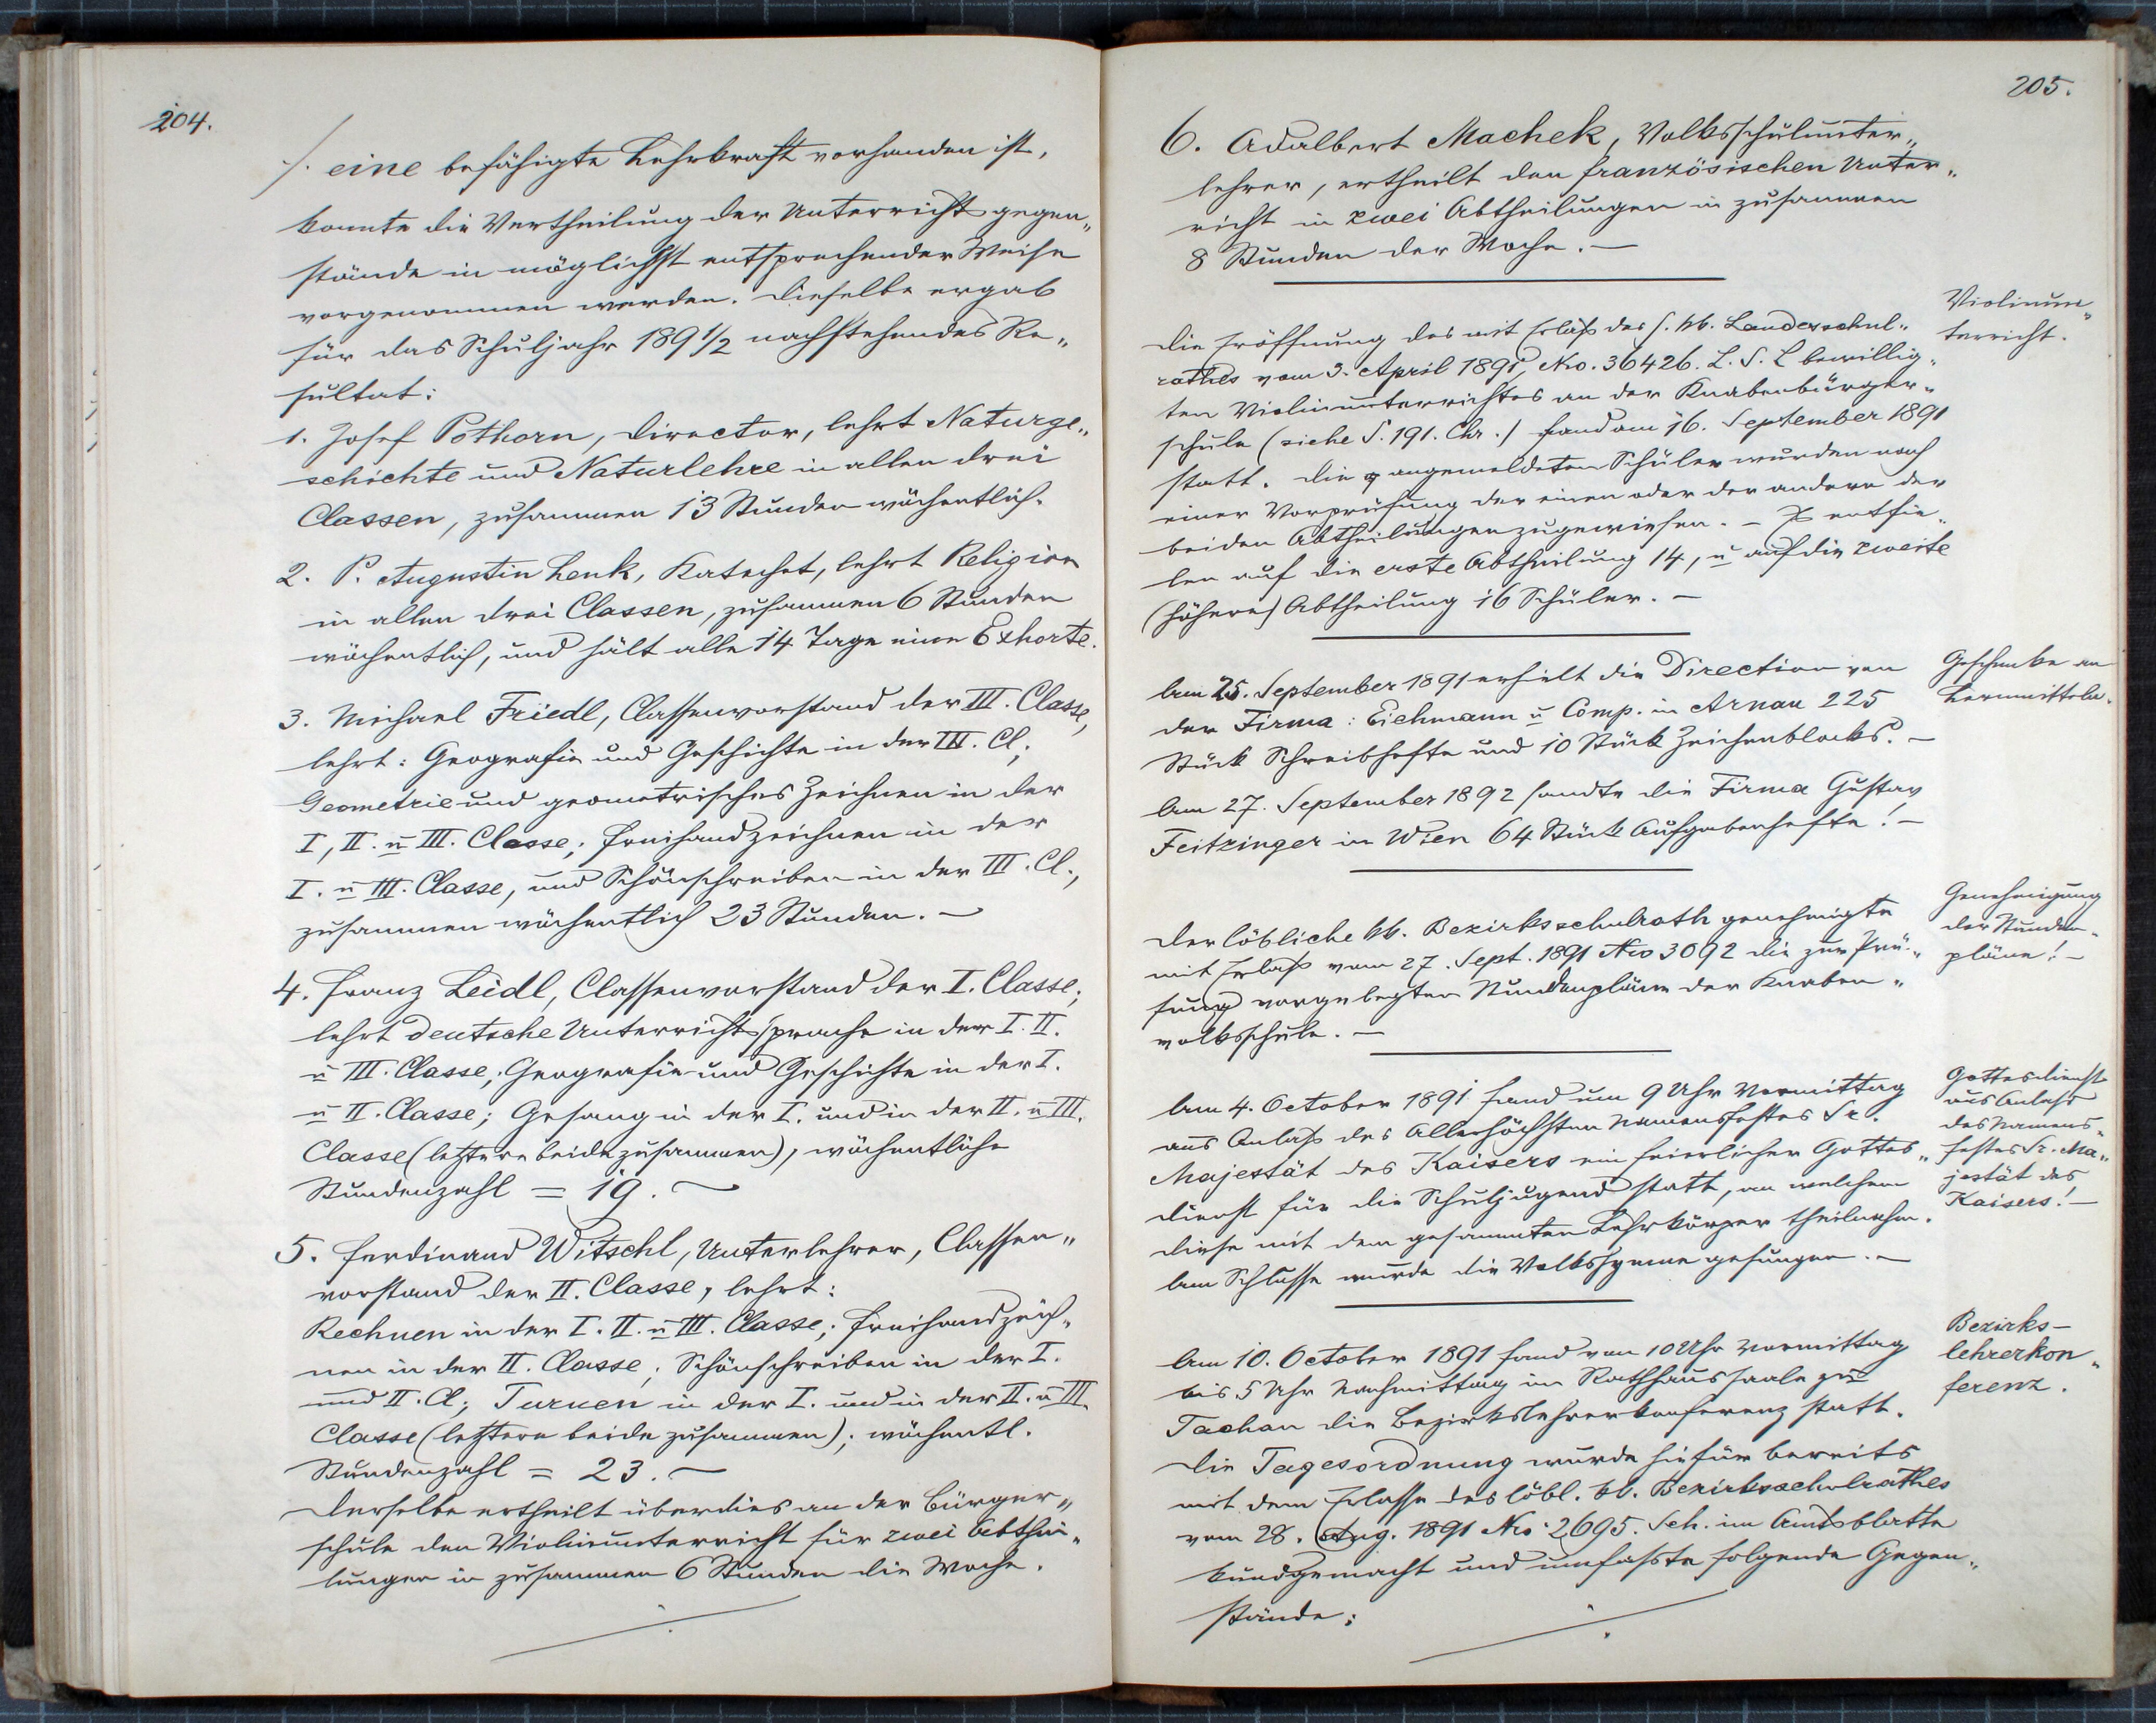 204.
/. eine befähigte Lehrkraft vorhanden ist,
konnte die Vertheilung der Unterrichtsgegen„
stände in möglichst entsprechender Weise
vorgenommen werden. Dieselbe ergab
für das Schuljahr 1891/2 nachstehendes Re„
sultat:
1. Josef Pothorn, Director, lehrt Naturge„
schichte und Naturlehre in allen drei
Classen, zusammen 13 Stunden wöchentlich.
2. P. Augustin Lenk, Katechet, lehrt Religion
in allen drei Classen, zusammen 6 Stunden
wöchentlich, und hält alle 14 Tage eine Exhorte.
3. Michael Friedl, Classenvorstand der III. Classe,
lehrt: Geografie und Geschichte in der III. Cl.,
Geometrie und geometrisches Zeichnen in der
I, II. u III. Classe; Freihandzeichnen in der
I. u III. Classe, und Schönschreiben in der III. Cl.,
zusammen wöchentlich 23 Stunden. –
4. Franz Leidl, Classenvorstand der I. Classe;
lehrt deutsche Unterrichtssprache in der I. II.
u III. Classe; Geografie und Geschichte in der I.
u II. Classe; Gesang in der I. und in der II. u III.
Classe (letztere beide zusammen), wöchentliche
Stundenzahl = 19. –
5. Ferdinand Witschl, Unterlehrer, Classen„
vorstand der II. Classe, lehrt:
Rechnen in der I. II. u III. Classe; Freihandzeich„
nen in der II. Classe; Schönschreiben in der I.
und II. Cl; Turnen in der I. und in der II. u III.
Classe (letztere beide zusammen); wöchentl.
Stundenzahl = 23. –
Derselbe ertheilt überdies an der Bürger„
schule den Violinunterricht für zwei Abthei„
lungen in zusammen 6 Stunden die Woche.
205.
6. Adalbert Machek, Volksschulunter„
lehrer, ertheilt den französischen Unter„
richt in zwei Abtheilungen in zusammen
8 Stunden der Woche. –
Violinun„
terricht.
Die Eröffnung des mit Erlaß des h. kk. Landesschul„
rathes vom 3. April 1891, Nro. 36426. L. S. R. bewillig„
ten Violinunterrichtes an der Knabenbürger„
schule (siehe S. 191. Chr.) fand am 16. September 1891
statt. Die angemeldeten Schüler wurden nach
einer Vorprüfung der einen oder der andern der
beiden Abtheilungen zugewiesen. – Es entfie„
len auf die erste Abtheilung 14, u auf die zweite
(höhere) Abtheilung 16 Schüler. –
Geschenke an
Lernmitteln.
Am 25. September 1891 erhielt die Direction von
der Firma: Eichmann u Comp. in Arnau 225
Stück Schreibhefte und 10 Stück Zeichenblocks. –
Am 27. September 1892 sandte die Firma Gustav
Feitzinger in Wien 64 Stück Aufgabenhefte! –
Genehmigung
der Stunden„
pläne! –
Der löbliche kk. Bezirksschulrath genehmigte
mit Erlaß vom 27. Sept. 1891 Nro 3092 die zur Prü„
fung vorgelegten Stundenpläne der Knaben„
volksschule. –
Gottesdienst
aus Anlaß
des Namens„
festes Sr. Ma„
jestät des
Kaisers! –
Am 4. October 1891 fand um 9 Uhr Vormittag
aus Anlaß des Allerhöchsten Namensfestes Sr.
Majestät des Kaisers ein feierlicher Gottes„
dienst für die Schuljugend statt, an welchem
diese mit dem gesammten Lehrkörper theilnahm.
Am Schlusse wurde die Volkshymne gesungen. –
Bezirks–
lehrerkon„
ferenz.
Am 10. October 1891 fand von 10 Uhr Vormittag
bis 5 Uhr Nachmittag im Rathhaussaale zu
Tachau die Bezirkslehrerkonferenz statt.
Die Tagesordnung wurde hiefür bereits
mit dem Erlasse des löbl. kk. Bezirksschulrathes
vom 28. Aug. 1891 Nro. 2695. Sch. im Amtsblatte
kundgemacht und umfaßte folgende Gegen„
stände: